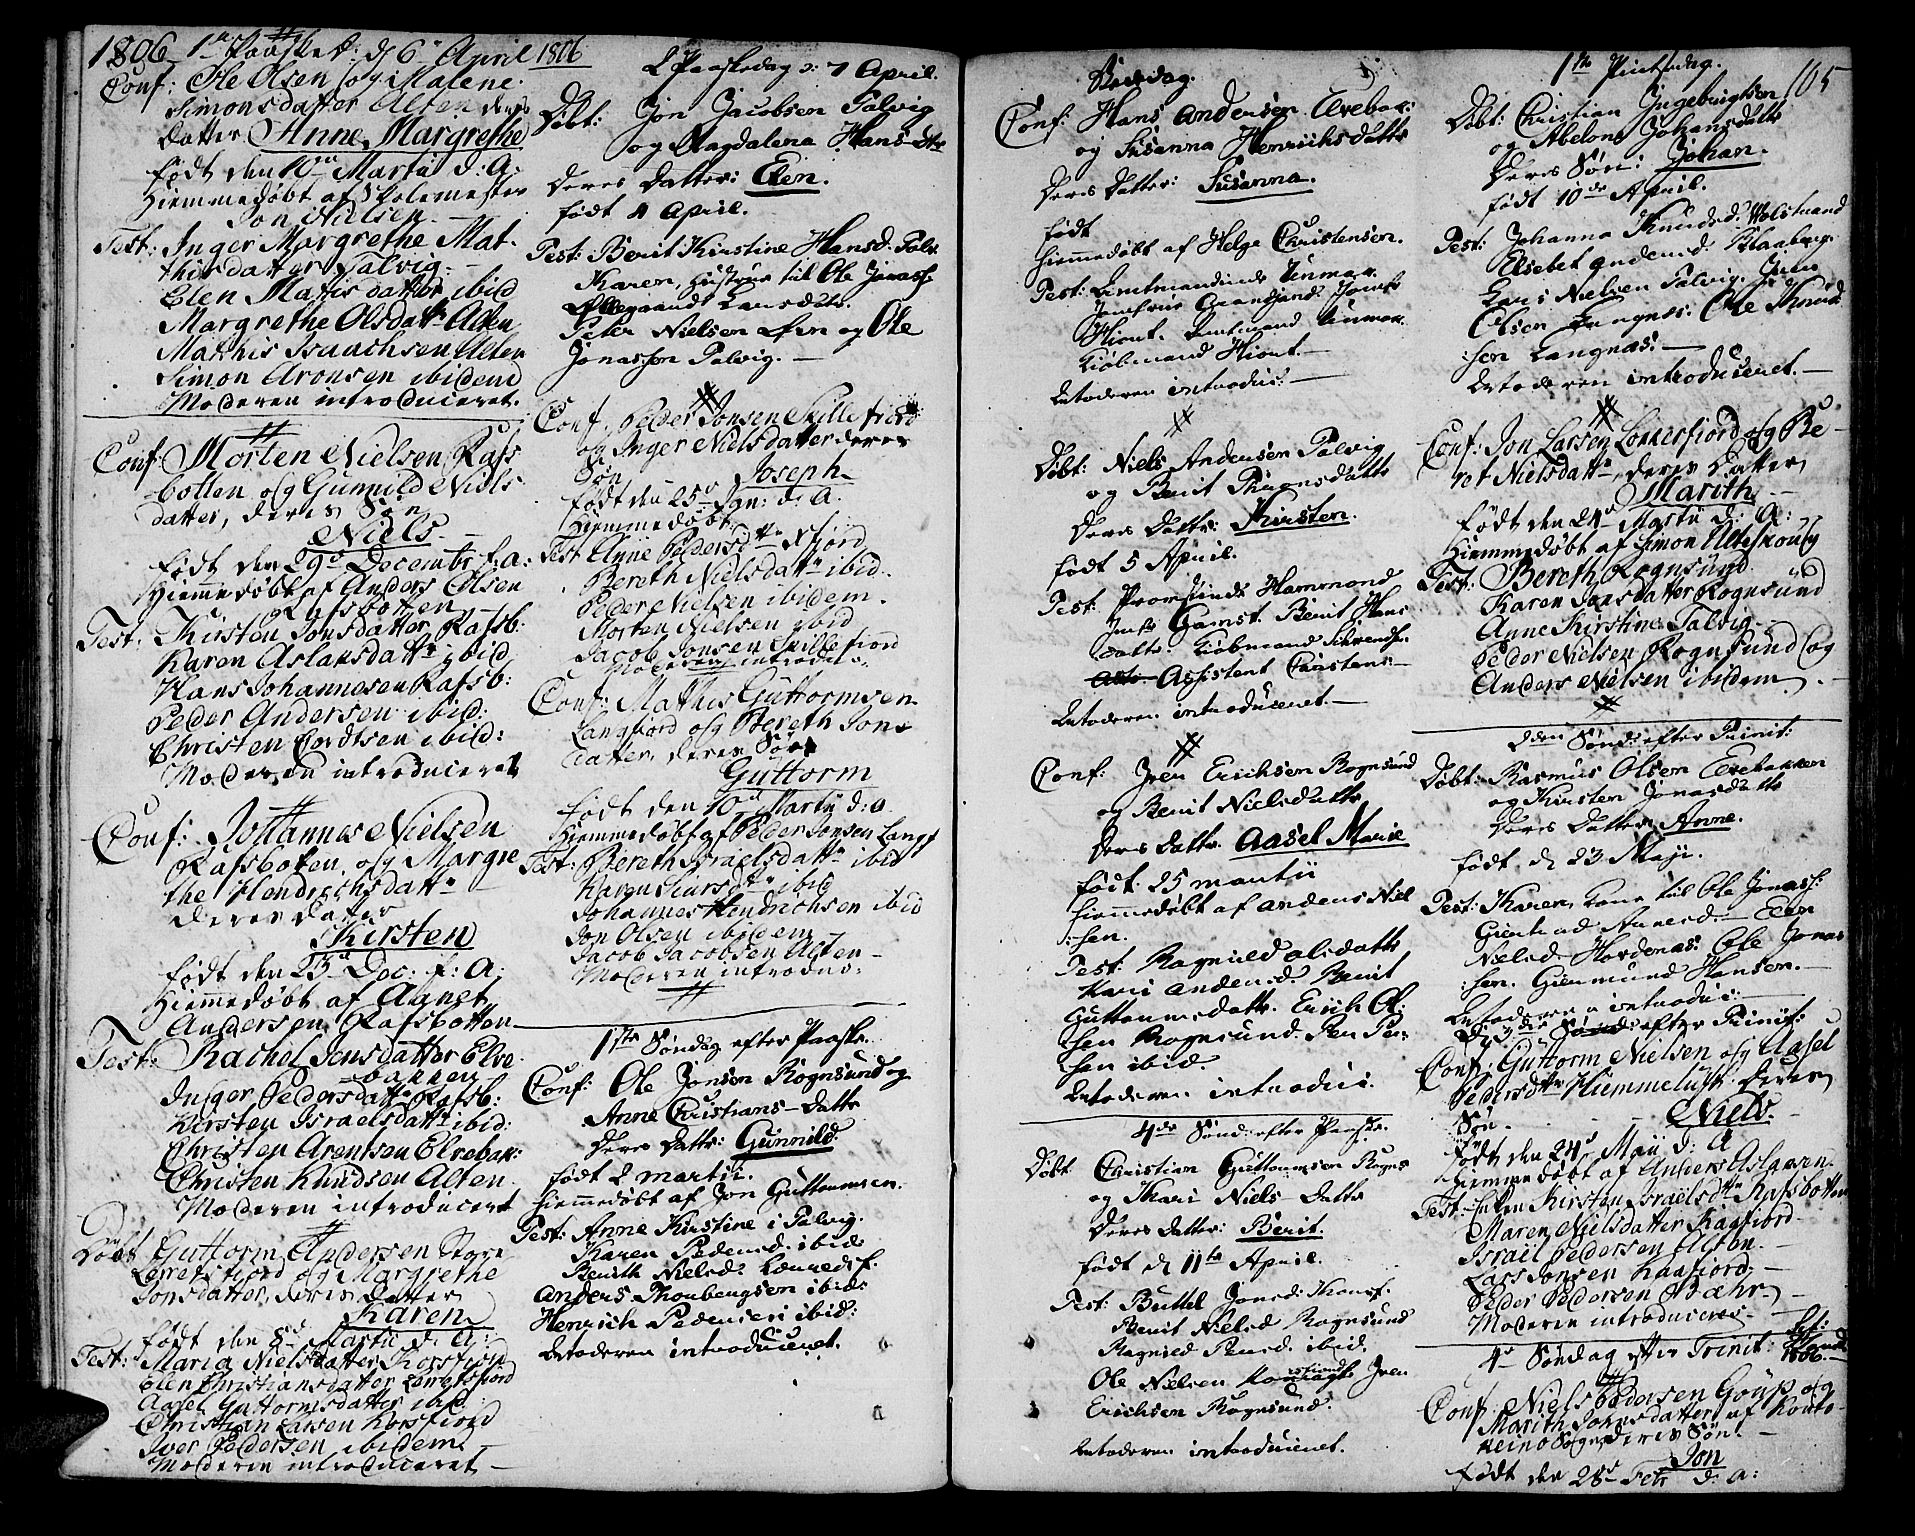 1806 1te Paasked: d 6te April 1806
Conf: Ole Olsen og Malene
Simonsdatter Alten deres
datter Anne Margrethe
født den 10de Martii d: A:
Hiemmedøbt af Skolemester
Jon Nielsen.
Test: Inger Margrethe Mat-
thisdatter Talvig.
Elen Mathisdatter ibid
Margrethe Olsdattr Alten
Mathis Isaachsen Alten
Simon Aronsen ibidem
Moderen introduceret.
Conf: Morten Nielsen Rafs
botten og Gunnild Niels
datter, deres Søn
Niels.
født den 29d Decembr f: a:
Hiemmedøbt af Anders Olsen
Rafsbotten
Test: Kirsten Jonsdatter Rafsb:
Karen Aslaksdattr ibid
Hans Johannesen Rafsb:
Peder Andersen ibid:
Christen Cordtsen ibid:
Moderen introduceret
Conf: Johannes Nielsen
Rafsboten, og Margre
the Hendrichsdattr
deres Datter
Kirsten
født den 23d Dec: f: A:
Hiemmedøbt af Agnet
Andersen Rafsbotten
Test: Rachel Jensdatter Elve
bakken
Inger Pedersdattr Rafsb:
Kirsten Israelsdattr ibid:
Christen Arentsen Elvebak:
Christen Knudsen Alten
Moderen introduceret
Døbt Guttorm Andersen Store
Lerretsfiord og Margrethe
Jonsdatter, deres Datter
Karen
født den 8d Martii d: A:
Test: Maria Nielsdatter Korsfiord
Elen Christiansdatter Lerretsfiord
Aasel Guttormsdatter ibid
Christian Larsen Korsfiord
Iver Pedersen ibidem
Moderen introduceret
2 Paaskedag d: 7 April.
Døbt: Jon Jacobsen Talvig
og Magdalena Hans-Dtr
Deres Datter: Elen.
født 4 April.
Test: Berit Kirstine Hansd: Talv
Karen, Hustrue til Ole Jonass:
Peter Nielsen Øren og Ole
Jonassen Talvig.
Conf: Peder Jonsen Skillefiord
og Inger Nielsdatter deres
Søn Joseph
født den 25de Jan: d: A:
Hiemmedøbt
Test Anne Pedersdtr Kfiord
Bereth Nielsdattr ibid.
Peder Nielsen ibidem.
Morten Nielsen ibid
Jacob Jonsen Skillefiord
Moderen introdu:
Conf: Mathis Guttormsen
Langfiord og Bereth Jons
datter, deres Søn
Guttorm
født den 10d Martii d: a.
Hiemmedøbt af Peder Jonsen Langf
Test: Bereth Israelsdattr ibid
Karen Larsdtr ibid
Johannes Hendrichsen ibid
Jon Olsen ibidem
Jacob Jacobsen Alten
Moderen introduc:
1ste Søndag efter Paaske.
Conf: Ole Jonsen Rognsund og
Anne Christians-Datte
Deres Dattr: Gunnild.
født 2 martii.
hiemmedøbt af Jon Guttormsen.
Test: Anne Kirstine i Talvig.
Karen Pedersd. ibid:
Berith Nielsd:
Anders Thorbergsen ibid:
Henrich Pedersen ibid:
Betoderen introduceret.
Bededag.
Conf: Hans Andersen Elvebak:
og Susanna Henrichsdatte
Deres Datter: Susanna.
født
hiemmedøbt af Helge Christensen.
Test:
Hiort.
Kiøbmand Hiort.
introduc:
Døbt: Niels Andersen Talvig
og Berit Thuresdatte
Deres Datter: Kirsten.
født 5 April.
Test: Provstinde Hammond
Jmfr Gamst. Berit Hans
datt. Kiøbmand
Assistent Carstens
introduceret.
Conf: Iver Erichsen Rognsund
og Berit Nielsdatte
Deres Dattr. Aasel Marie
født 25 martii
hiemmedøbt af Anders Niel
sen.
Test: Ragnild Olsdatte
Kari Andersd. Berit
Guttormsdatte. Erich Ol:
sen Rognsund. Per Per-
sen ibid.
introduc:
4de Sønd: efter Paaske.
Døbt Christian Guttormsen Rogns
og Kari Niels-Datte
Deres Datter: Berit.
født d 11te April.
Test: Buttel Jonsd:
Berit Nielsd Rognsund
Ragnild Persd. ibid.
Ole Nielsen Iver
Erichsen Rognsund.
introduceret.
1ste Pintsedag. 165
Døbt: Christian Ingebrigtsen
og Abelone Johansdatte
Deres Søn: Johan.
født 10de April.
Test: Johanna Knudsd: Wolstrand
Elsebet Andersd. Klaaberg:
Lars Nielsen Talvig. Iver
Olsen Langnæs: Ole Knud
sen Langnæs.
introduceret.
Conf: Jon Larsen Lokkerfiord og Be-
ret Nielsdattr, deres Datter
Marith
født den 24d Martii d: A:
Hiemmedøbt af Simon Alteskoug
Test: Bereth Rognsund
Karen Jonsdatter Rognsund
Anne Kirstine Talvig
Peder Nielsen Rognsund og
Anders Nielsen ibidem.
Sønd: efter Trinit:
Døbt: Rasmus Olsen Elvebakken
og Kirsten Jonasdatte
Deres Datter Anne.
født d 23 Maji.
Test: Karen, Kone til Ole Jonass:
Giertrud Arnesd: Elen
Nielsd. Ole Jonas
sen. Giermund Hansen.
introduc:
3die Sønd: efter Trinit:
Conf: Guttorm Nielsen og Aasel
Pedersdtr Hiemmeluft deres
Søn Niels.
født den 24d Maii d: A
Hiemmedøbt af Anders Aslacsen
Test: Enken Kirsten Israelsdtr Rafsbotten
Maren Nielsdatter Kaafiord
Israel Pedersen Alten.
Lars Jonsen Kaafiord
Peder Pedersen Bæhr
Moderen introduceres
4d Søndag efter Trinit:
1806.
Conf: Niels Pedersen Goup og
Marith Johnsdatter af Kouto-
keino Sogn deres Søn
Jon
født den 28d Febr d: a: